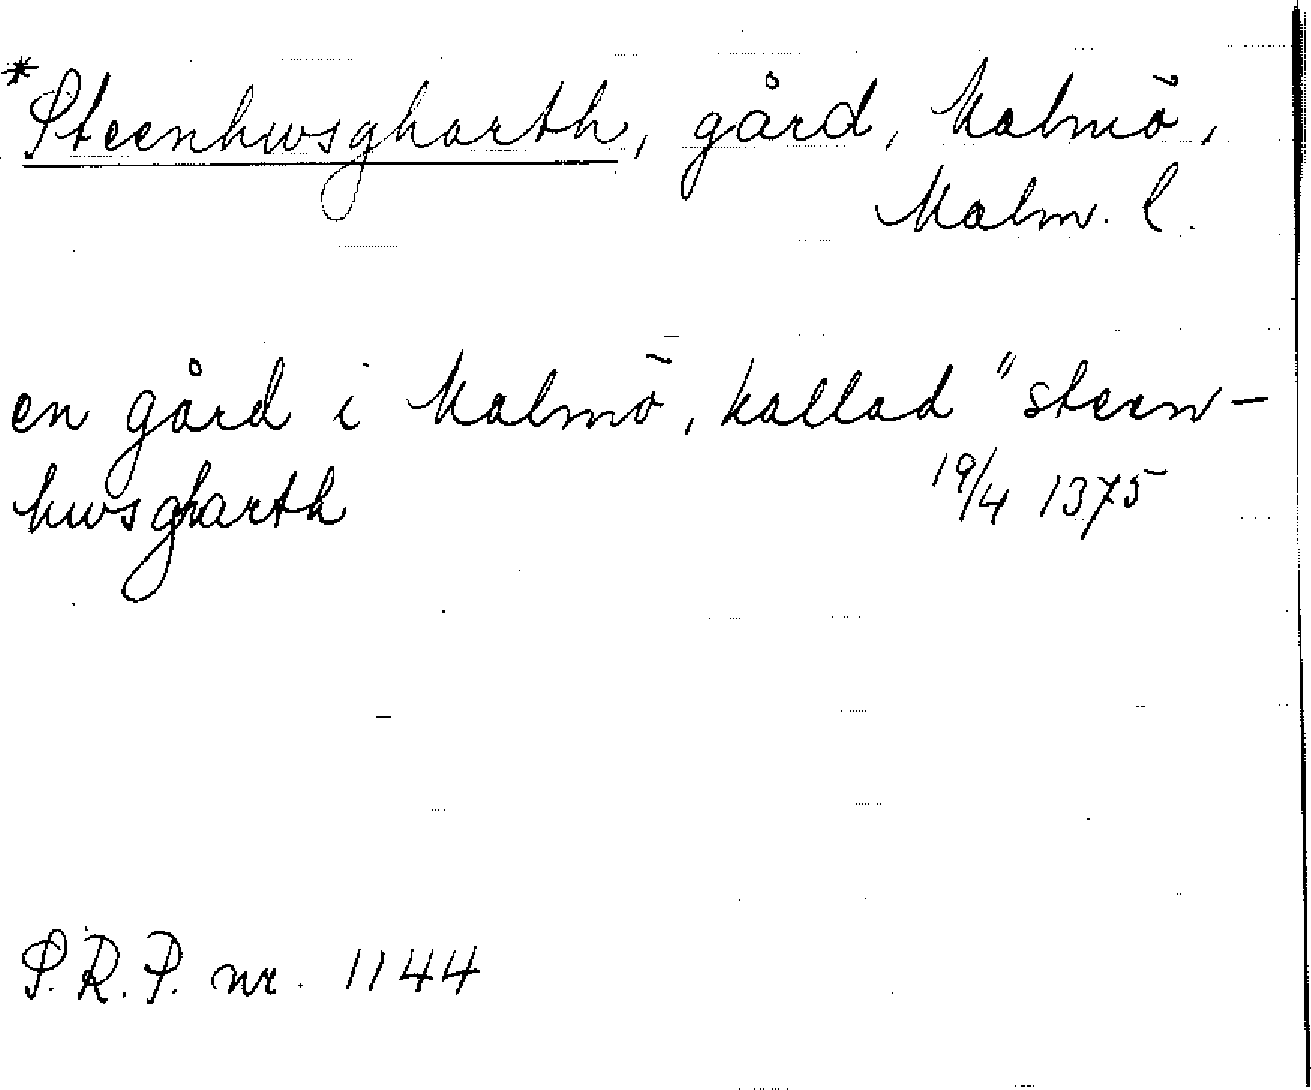 *Steenhwsgharth, gård, Malmö,
Malm. l.
en gård i Malmö, kallad "steen-
hwsgharth 19/4 1375
S.R.P. nr. 1144